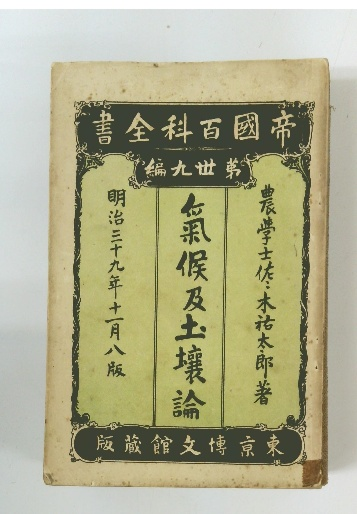 帝國百科全書
第卅九編
農學士佐々木祐太郎著
氣候及土壤論
明治三十九年十一月八版
東京博文館藏版